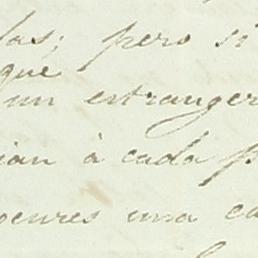 las; pero si
que
un estranger
ian à cada p
oeures una ca